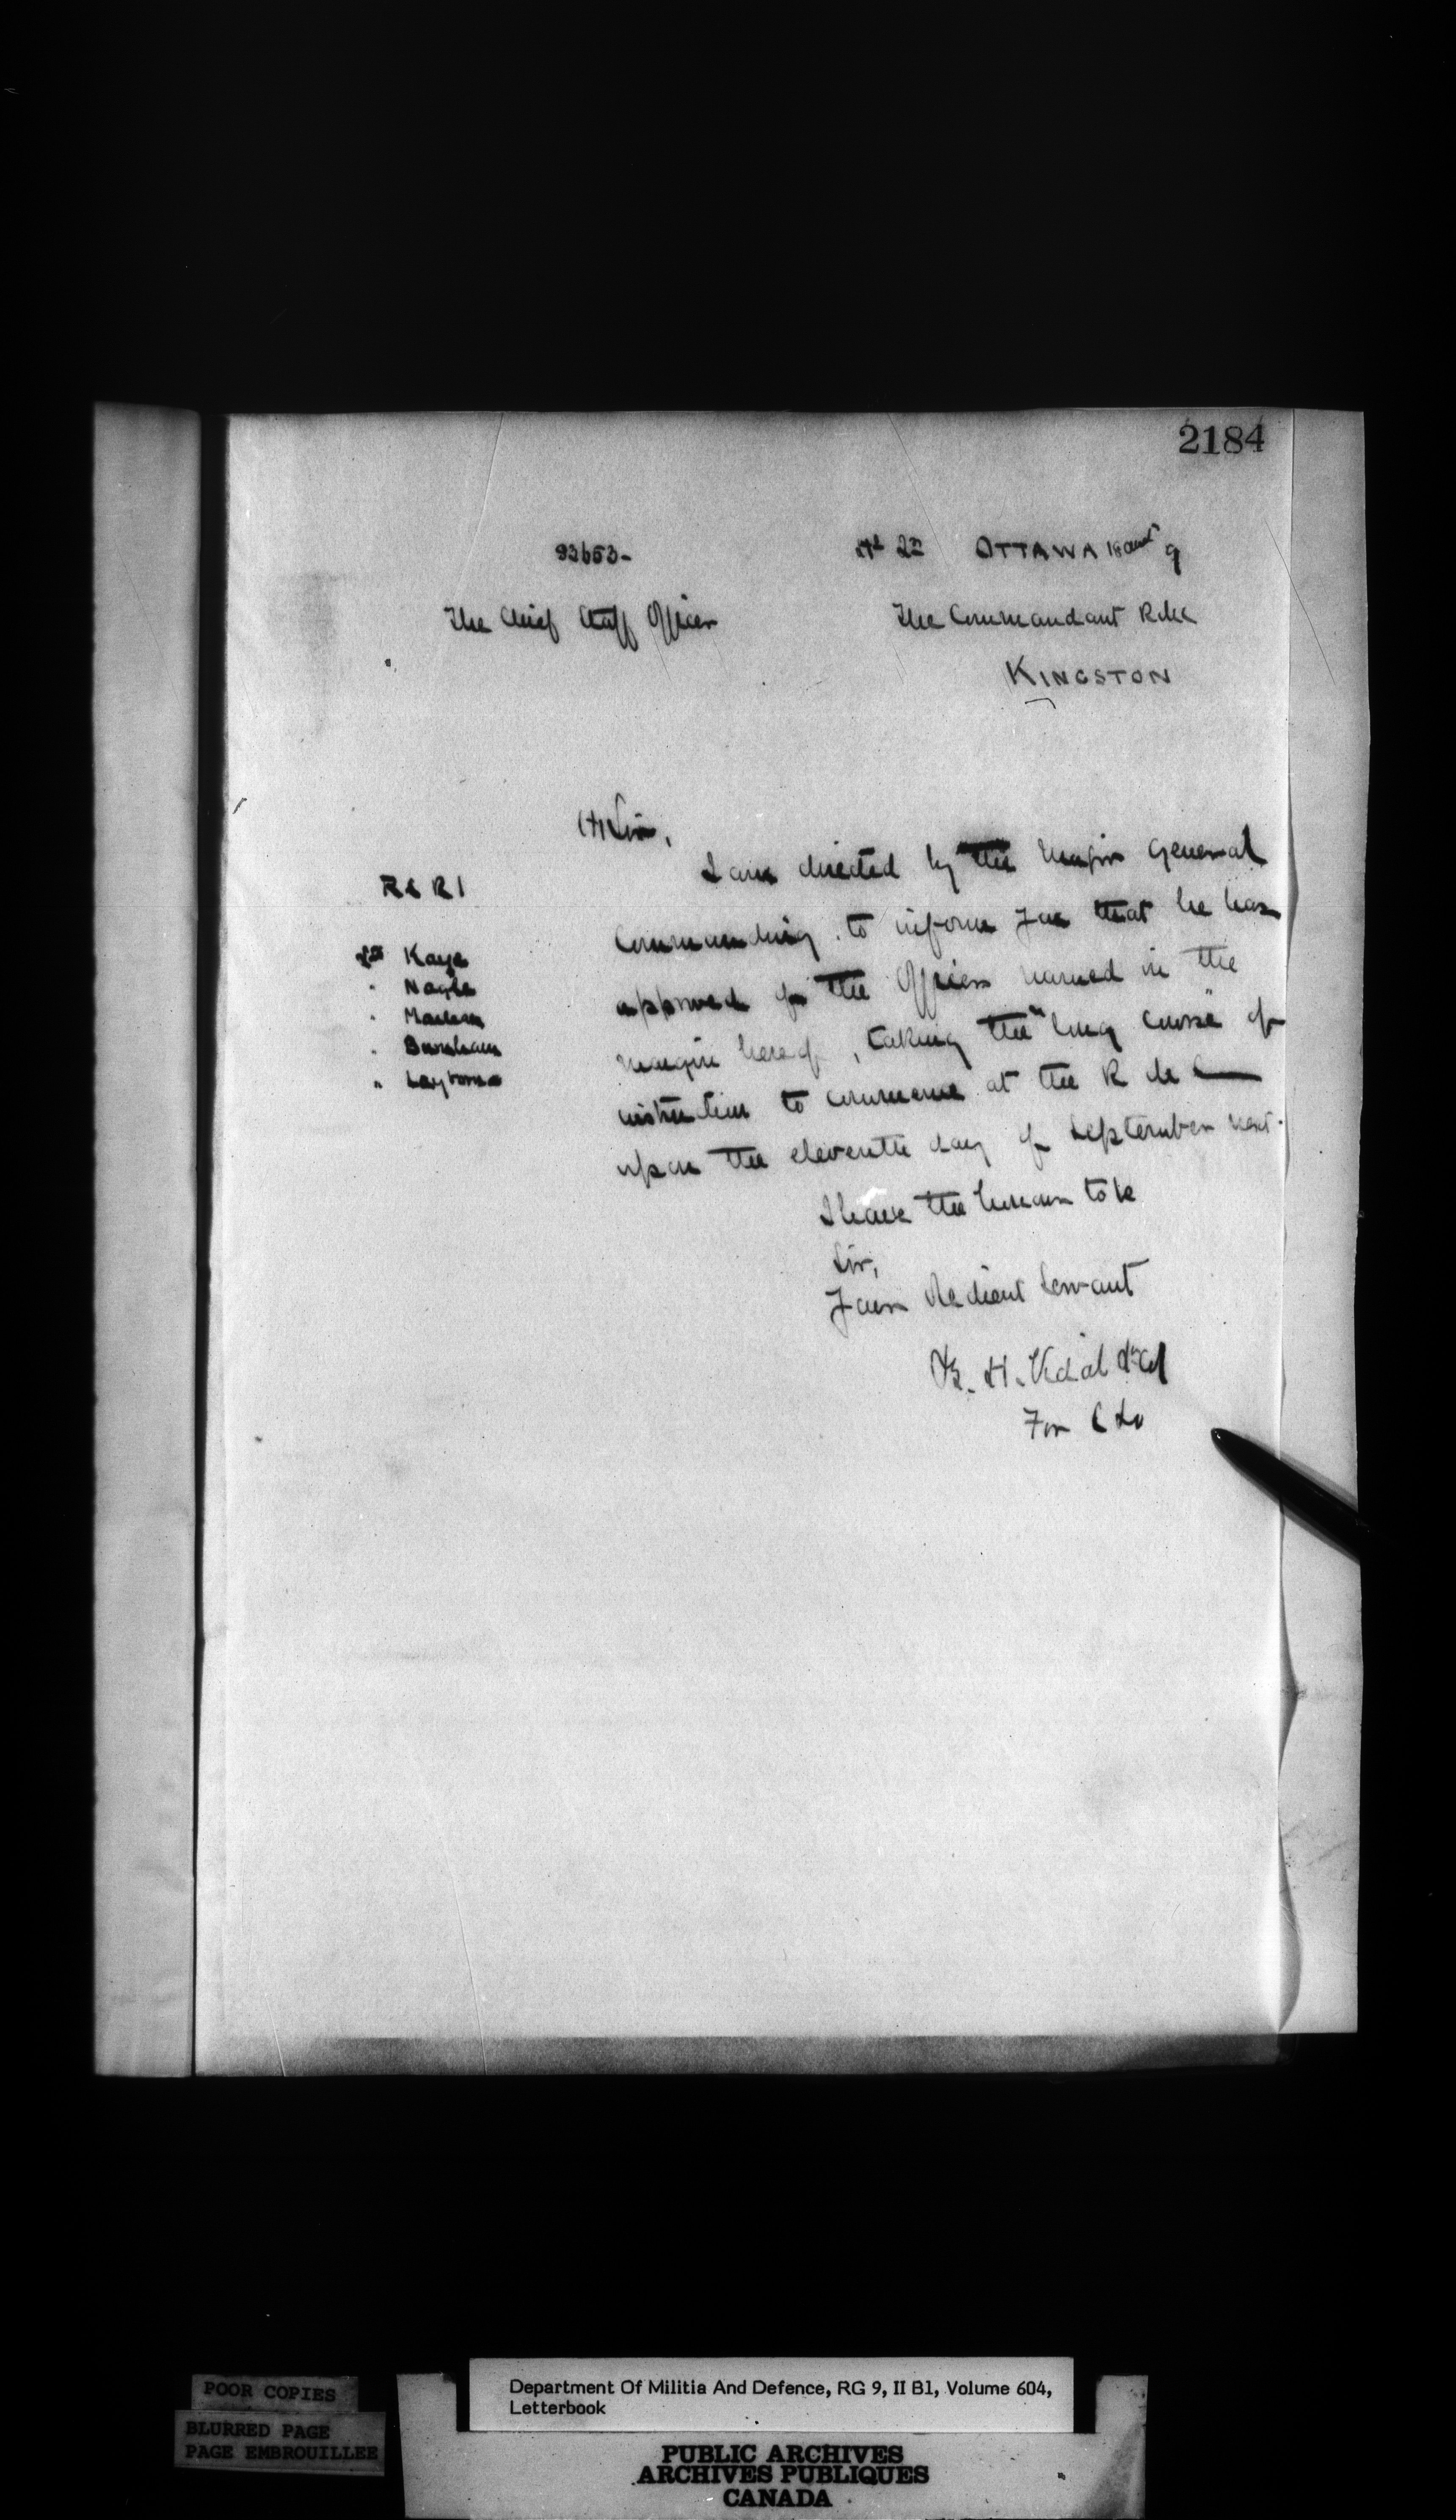 2184
93653-
OTTAWA 18 Augt 9
The Chief Staff Officer
The Commandant RMC
KINGSTON
Sir,
I am directed by the Major General
Commanding, to inform you that he has
approved of the Officers named in the
margin hereof, taking the "long course" of
instruction to commence at the R M C
upon the eleventh day of September next.
R C R I
Lt Kaye
" Nagle
"
" Burnham
" Layborn
I have the honour to be
Sir,
Your Obedient Servant
B. H. Vidal Lt Col
For C S O
POOR COPIES
BLURRED PAGE
PAGE EMBROUILLEE
Department Of Militia And Defence, RG 9, II B1, Volume 604,
Letterbook
PUBLIC ARCHIVES
ARCHIVES PUBLIQUES
CANADA